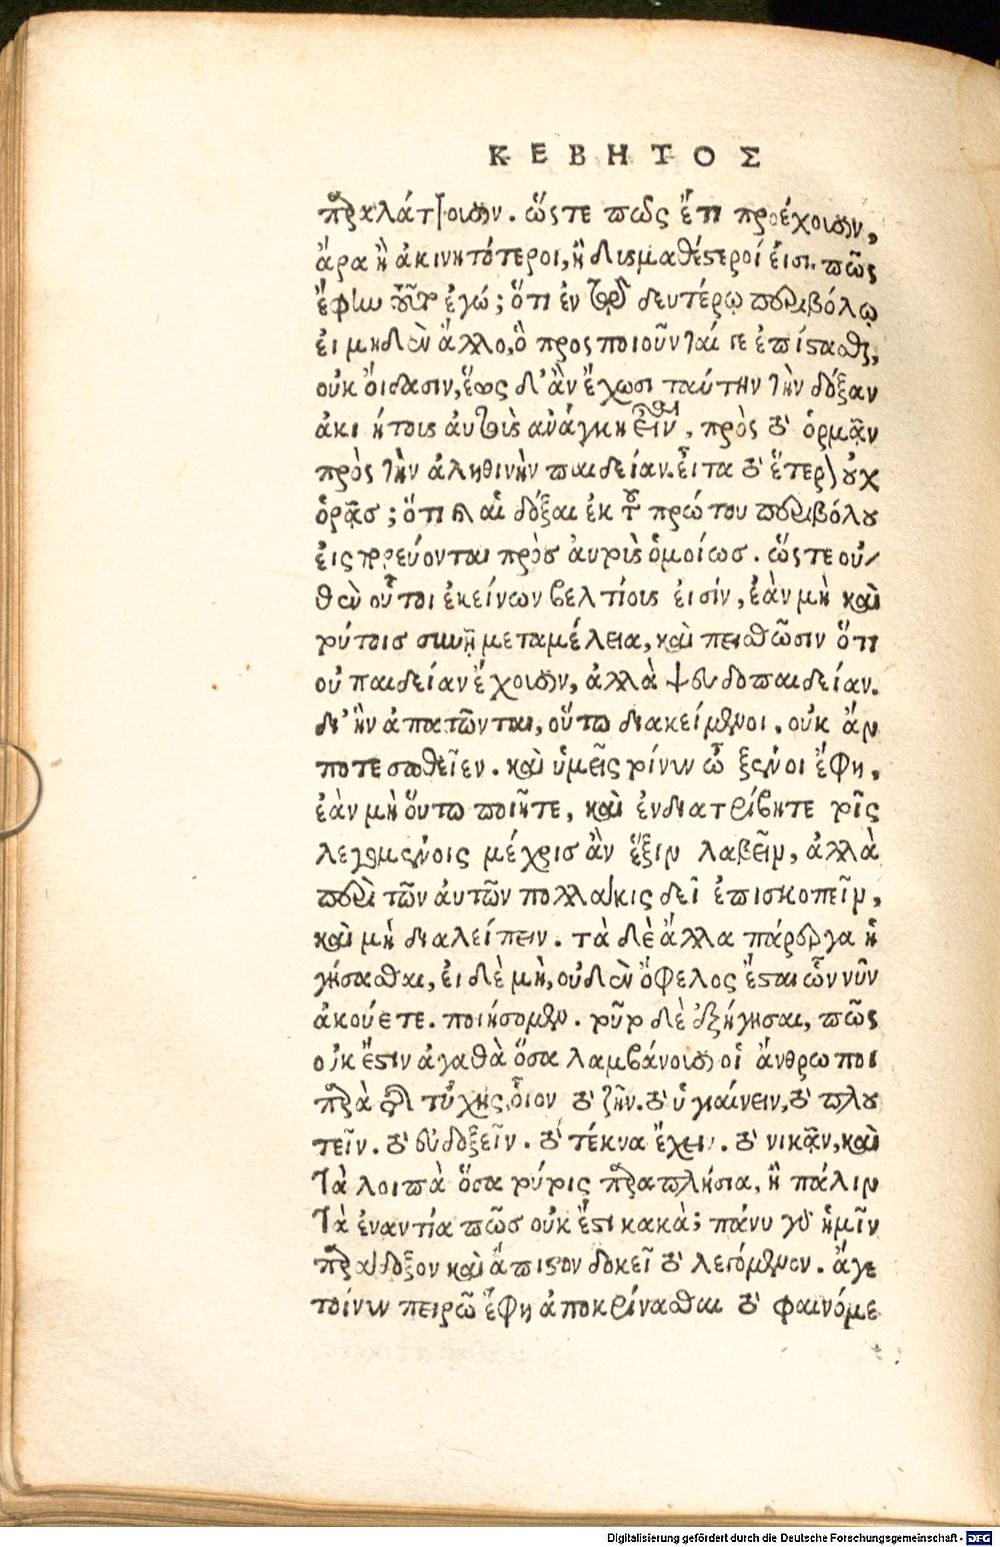 ΚΕΒΗΤΟΣ
πραλάττουσιν. ὥςτε πῶς ἔτι προέχουσιν,
ἄρα ἢ ἀκινητότεροι, ἢ δυσμαθέστεροί εἰσι. πῶς
ἔφην τοῦτ' ἐγώ; ὅτι ἐν τῷ δευτέρῳ περιβόλῳ
εἰ μηδὲν ἄλλο, ὃ προςποιοῦνταί γε ἐπίστασθαι,
οὐκ οἴδασιν, ἕως δ' ἂν ἔχωσι ταύτην τὴν δόξαν
ἀκινήτους αὐτοὺς ἀνάγκη εἶναι, πρὸς τὸ ὁρμᾶν
πρὸς τὴν ἀληθινὴν παιδείαν. εἶτα τὸ ἕτερον οὐχ
ὁρᾷς; ὅτι καὶ αἱ δόξαι ἐκ τοῦ πρώτου περιβόλου
εἰςπορεύονται πρὸς αὐτοὺς ὁμοίως. ὥςτε οὐ-
θὲν οὗτοι ἐκείνων βελτίους εἰσίν, ἐὰν μὴ καὶ
τούτοις συνῇ μεταμέλεια, καὶ πεισθῶσιν ὅτι
οὐ παιδείαν ἔχουσιν, ἀλλὰ ψευδοπαιδείαν.
δι' ἣν ἀπατῶνται, οὕτω διακείμενοι. οὐκ ἄν
ποτε σωθεῖεν. καὶ ὑμεῖς τοίνυν ὦ ξένοι ἔφη,
ἐὰν μὴ οὕτω ποιῆτε, καὶ ἐνδιατρίβητε τοῖς
λεγομένοις μέχρις ἂν ἕξιν λαβεῖν, ἀλλὰ
περὶ τῶν αὐτῶν πολλάκις δεῖ ἐπισκοπεῖν,
καὶ μὴ διαλείπειν. τὰ δὲ ἄλλα πάρεργα ἡ
γήσασθαι, εἰ δὲ μὴ, οὐδὲν ὄφελος ἔσται ὧν νῦν
ἀκούετε. ποιήσομεν. τοῦτο δὲ ἐξήγησαι, πῶς
οὐκ ἔστιν ἀγαθὰ ὅσα λαμβάνουσιν οἱ ἄνθρωποι
παρὰ τῆς τύχης, οἷον τὸ ζῆν. τὸ ὑγιαίνειν, τὸ πλου
τεῖν. τὸ εὐδοξεῖν. τὸ τέκνα ἔχειν. τὸ νικᾶν, καὶ
τὰ λοιπὰ ὅσα τούτοις παραπλήσια, ἢ πάλιν
τὰ ἐναντία πῶς οὐκ ἔστι κακά; πάνυ γὰρ ἡμῖν
παράδοξον καὶ ἄπιστον δοκεῖ τὸ λεγόμενον. ἄγε
τοίνυν πειρῶ ἔφη ἀποκρίνασθαι τὸ φαινόμε
Digitalisierung gefördert durch die Deutsche Forschungsgemeinschaft - DFG